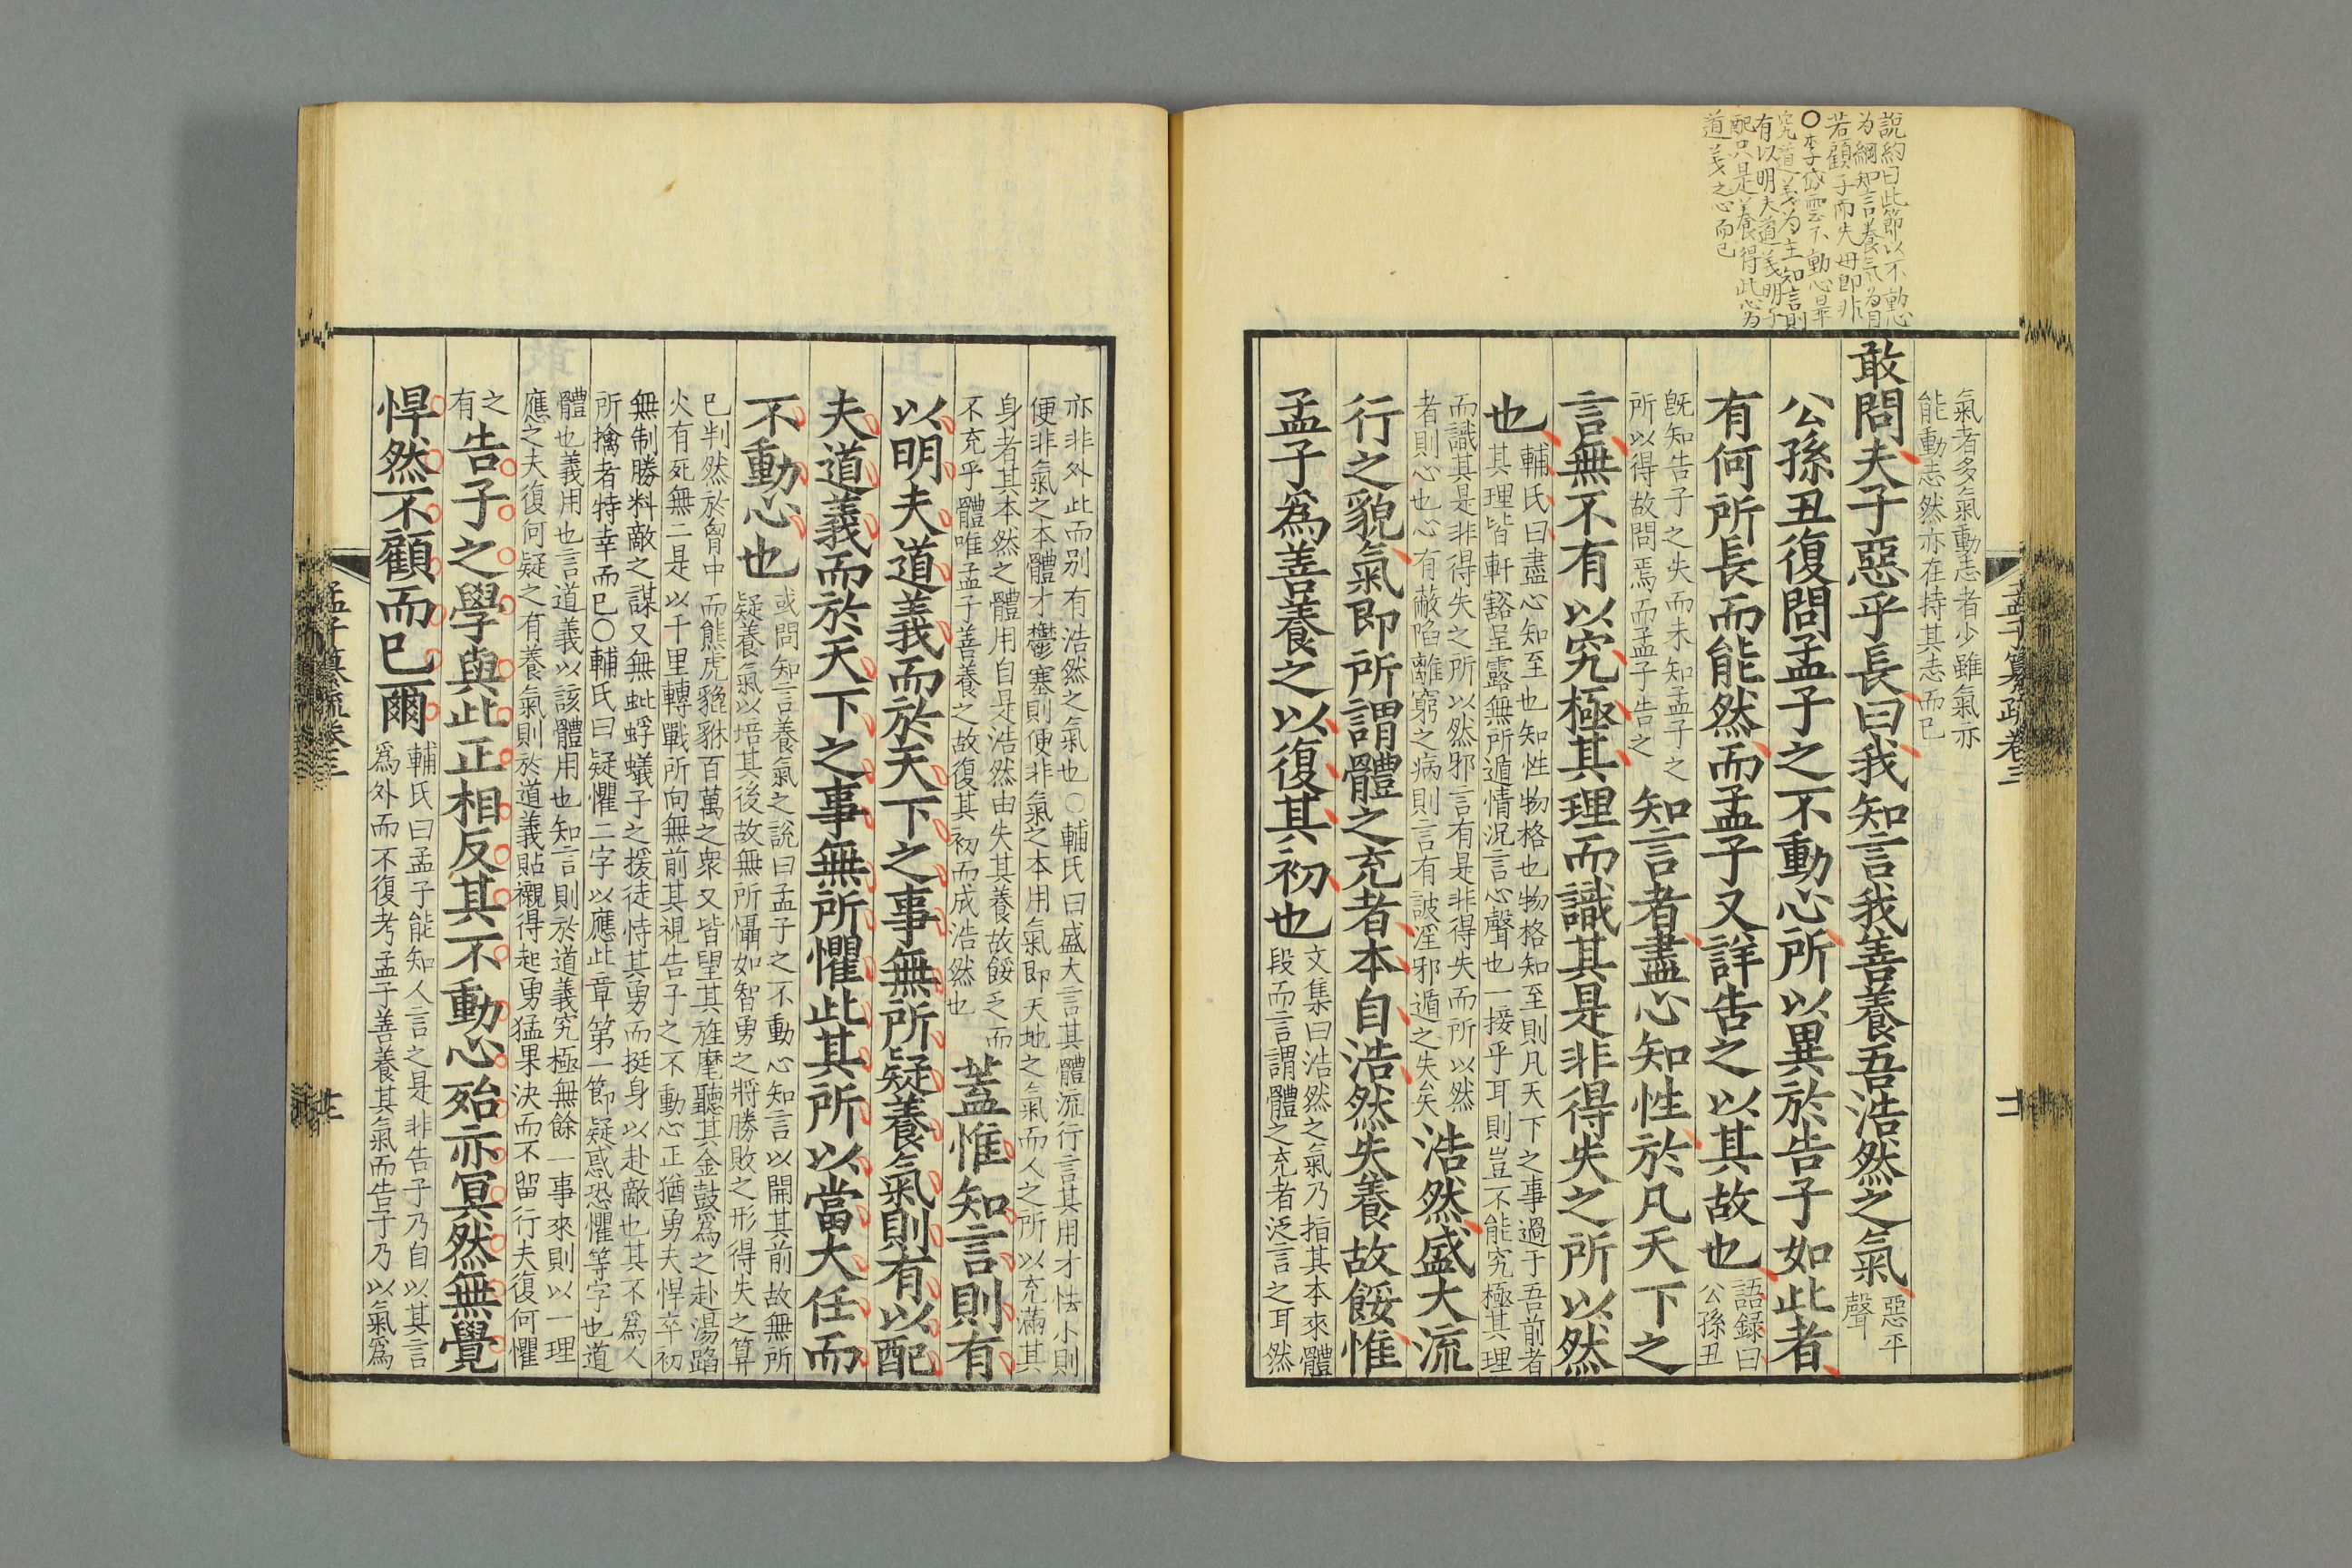 說約曰此節以不動心
为綱知言養氣为目
若顧子而失母即非
○李岱雲不動心是
究道義为主知言則
有以明夫道義明子
配只是養得此心为
道義之心而已
氣者多氣動志者少雖氣亦
能動志然亦在持其志而已
敢問夫子惡乎長曰我知言我善養吾浩然之氣惡平
聲
公孫丑復問孟子之不動心所以異於告子如此者
有何所長而能然而孟子又詳告之以其故也語録曰
公孫丑
旣知告子之失而未知孟子之
所以得故問焉而孟子告之
知言者盡心知性於凡天下之
言無不有以究極其理而識其是非得失之所以然
也輔氏曰盡心知至也知性物格也物格知至則凡天下之事過于吾前者
其理皆軒豁呈露無所遁情況言心聲也一接乎耳則豈不能究極其理
而識其是非得失之所以然邪言有是非得失而所以然
者則心也心有蔽陷離窮之病則言有詖淫邪遁之失矣
浩然盛大流
行之貌氣即所謂體之充者本自浩然失養故餒惟
孟子爲善養之以復其初也文集曰浩然之氣乃指其本來體
段而言謂體之充者泛言之耳然
亦非外此而別有浩然之氣也○輔氏曰盛大言其體流行言其用才怯小則
便非氣之本體才鬱塞則便非氣之本用氣即天地之氣而人之所以充滿其
身者其本然之體用自是浩然由失其養故餒乏而
不充乎體唯孟子善養之故復其初而成浩然也
蓋惟知言則有
以明夫道義而於天下之事無所疑養氣則有以配
夫道義而於天下之事無所懼此其所以當大任而
不動心也或問知言養氣之說曰孟子之不動心知言以開其前故無所
疑養氣以培其後故無所懾如智勇之將勝敗之形得失之算
已判然於胷中而熊虎貔貅百萬之衆又皆望其旌麾聽其金鼓爲之赴湯蹈
火有死無二是以千里轉戰所向無前其視告子之不動心正猶勇夫悍卒初
無制勝料敵之謀又無蚍蜉蟻子之援徒恃其勇而挺身以赴敵也其不爲人
所擒者特幸而已○輔氏曰疑懼二字以應此章第一節疑惑恐懼等字也道
體也義用也言道義以該體用也知言則於道義究極無餘一事來則以一理
應之夫復何疑之有養氣則於道義貼襯得起勇猛果決而不留行夫復何懼
之
有
告子之學與此正相反其不動心殆亦冥然無覺
悍然不顧而已爾輔氏曰孟子能知人言之是非告子乃自以其言
爲外而不復考孟子善養其氣而告子乃以氣爲
孟子纂疏卷三